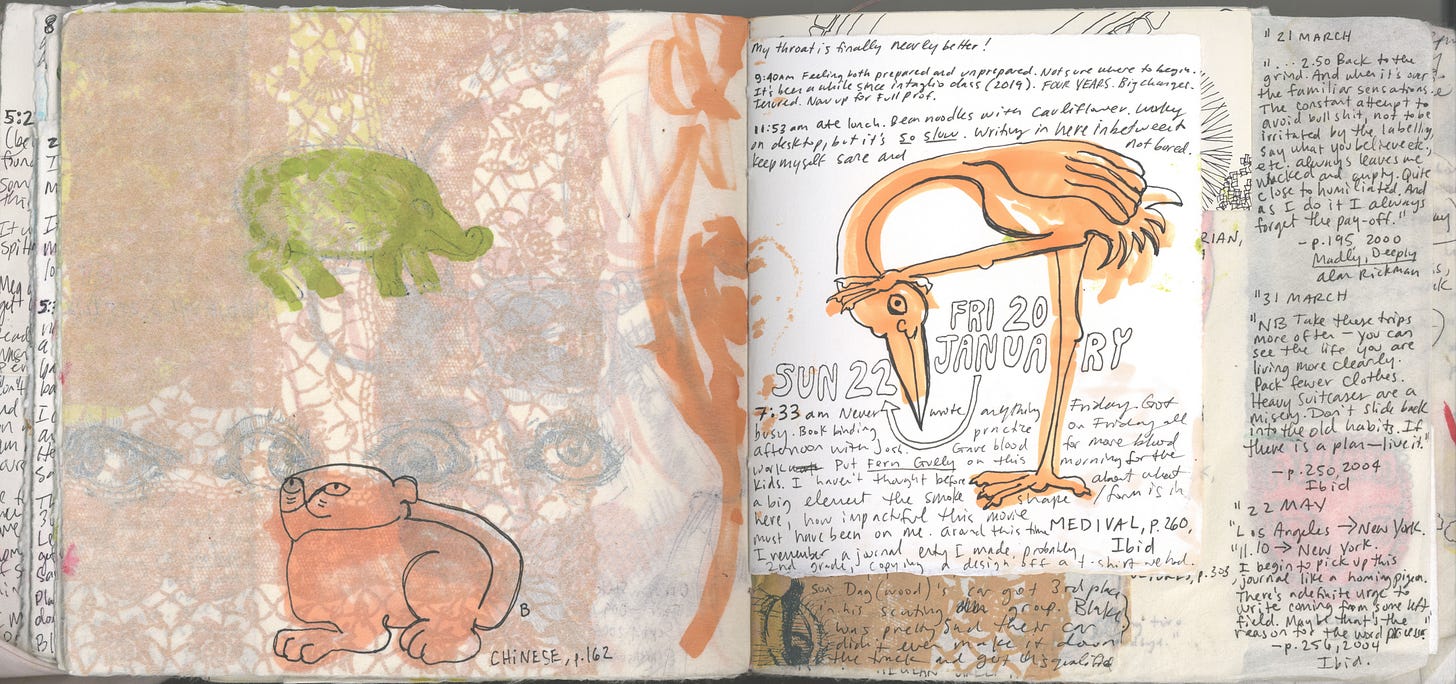 CHINESE, p.162
B
My throat is finally nearly better!
9:40am Feeling both prepared and unprepared. Not sure where to begin...
It's been a while since intaglio class (2019). FOUR YEARS. Big changes.
Tenured. Now up for Full Prof.
11:53 am ate lunch. Bean noodles with cauliflower.
on desktop, but it's so slow. Writing in here inbetween
keep myself sane and not bored.
FRI 20
JANUARY
SUN 22
7:33 am Never wrote anything Friday. Got
busy. Book binding practice on Friday all
afternoon with Josh. Gave blood for more blood
work Put Fern Gully on this morning for the
kids. I haven't thought before about what
a big element the smoke shape / form is in
here, how impactful this movie
must have been on me. around this time
I remember a journal entry I made probably
2nd grade, copying a design off a t-shirt we had.
MEDIVAL, p.260,
Ibid
RIAN,
p.303
son Dag (wood)'s car got 3rd place
in his group. Blake
was pretty sad their car
didn't even make it down
the track and got disqualified
"21 MARCH
"... 2.50 Back to the
grind. And when it's over
the familiar sensations.
The constant attempt to
avoid bullshit, not to be
irritated by the labelling,
say what you believe etc.,
etc. always leaves me
whacked and empty. Quite
close to humiliated. And
as I do it I always
forget the pay-off."
-p.195 2000
Madly, Deeply
Alan Rickman
"31 MARCH
"NB Take these trips
more often - you can
see the life you are
living more clearly.
Pack fewer clothes.
Heavy suitcases are a
misery. Don't slide back
into the old habits. If
there is a plan-live it."
-p.250, 2004
Ibid
"22 MAY
"Los Angeles → New York.
"11.10 → New York.
I begin to pick up this
journal like a homing pigeon.
There's a definite urge to
write coming from some left
field. Maybe that's the
reason for the word
-p.256, 2004
Ibid.